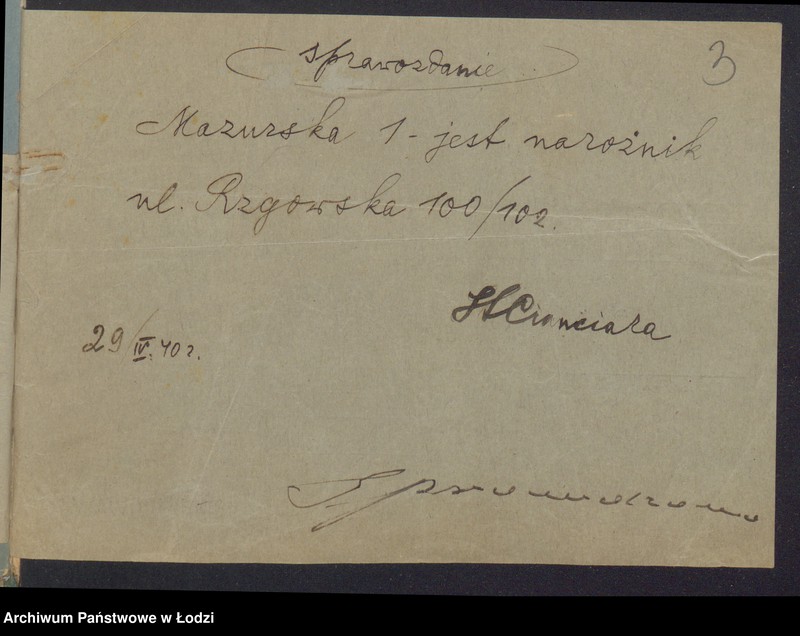 sprawozdanie
3
Mazurska 1 - jest narożnik
ul. Rzgowska 100/102.
Cianciara
29/IV.40 r.
Sprawdzono
Archiwum Państwowe w Łodzi